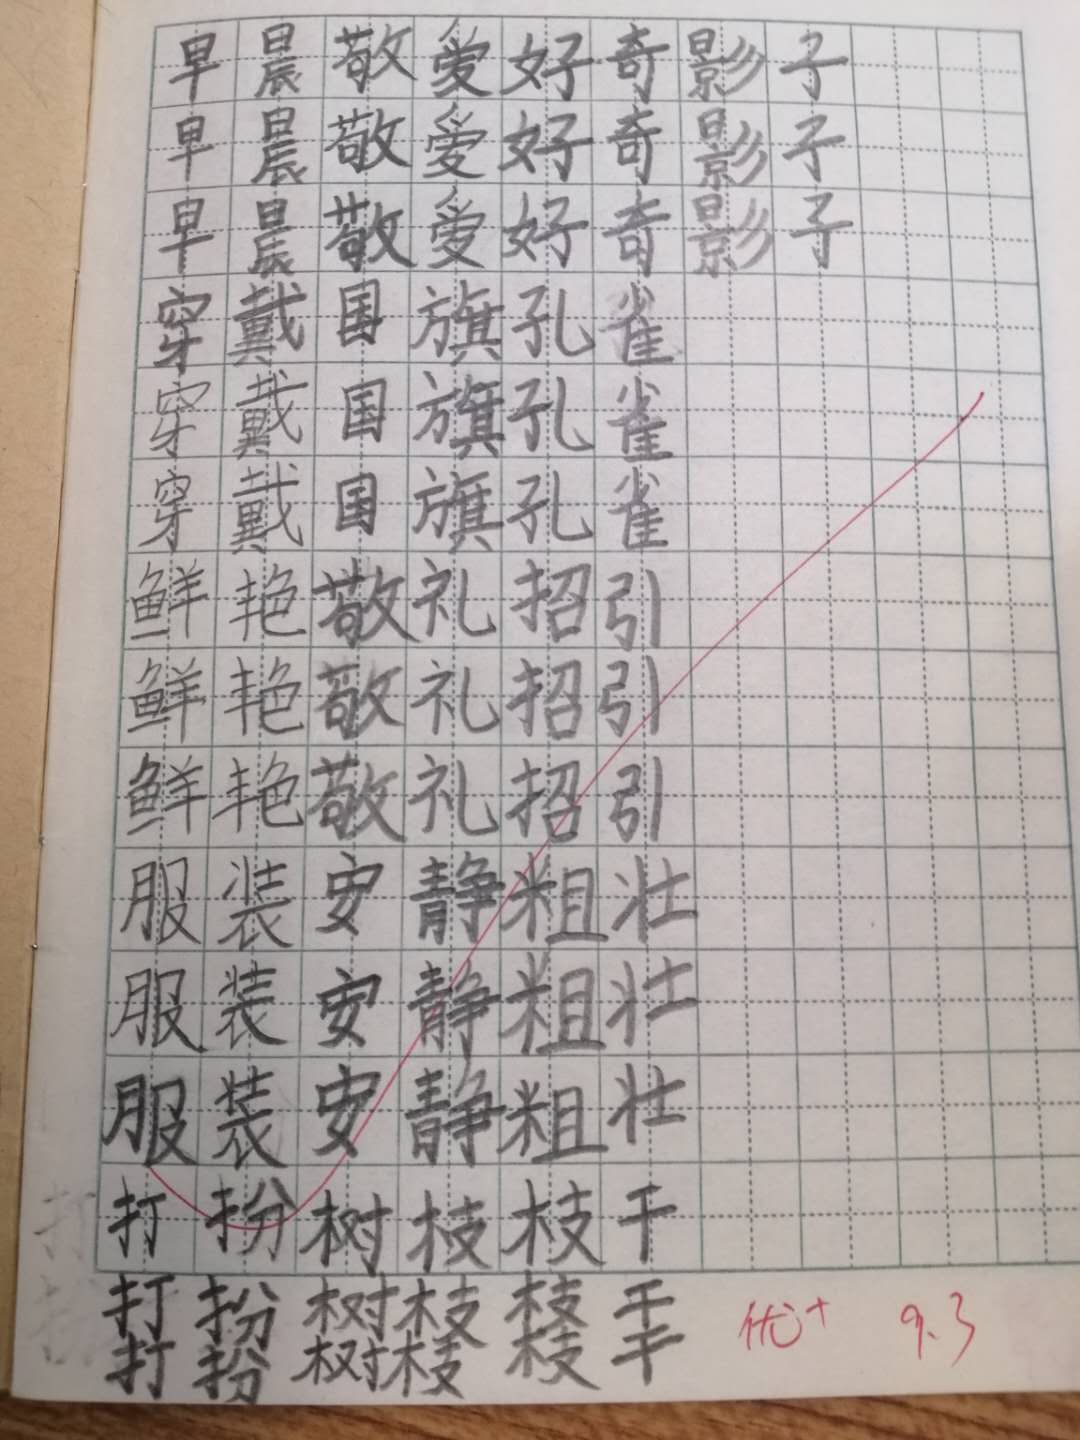 早晨敬爱好奇影子
早晨敬爱好奇影子
早晨敬爱好奇影子
穿戴国旗孔雀
穿戴国旗孔雀
穿戴国旗孔雀
鲜艳敬礼招引
鲜艳敬礼招引
鲜艳敬礼招引
服装安静粗壮
服装安静粗壮
服装安静粗壮
打扮树枝枝干
打扮树枝枝干
打扮树枝枝干
优+ 9.3